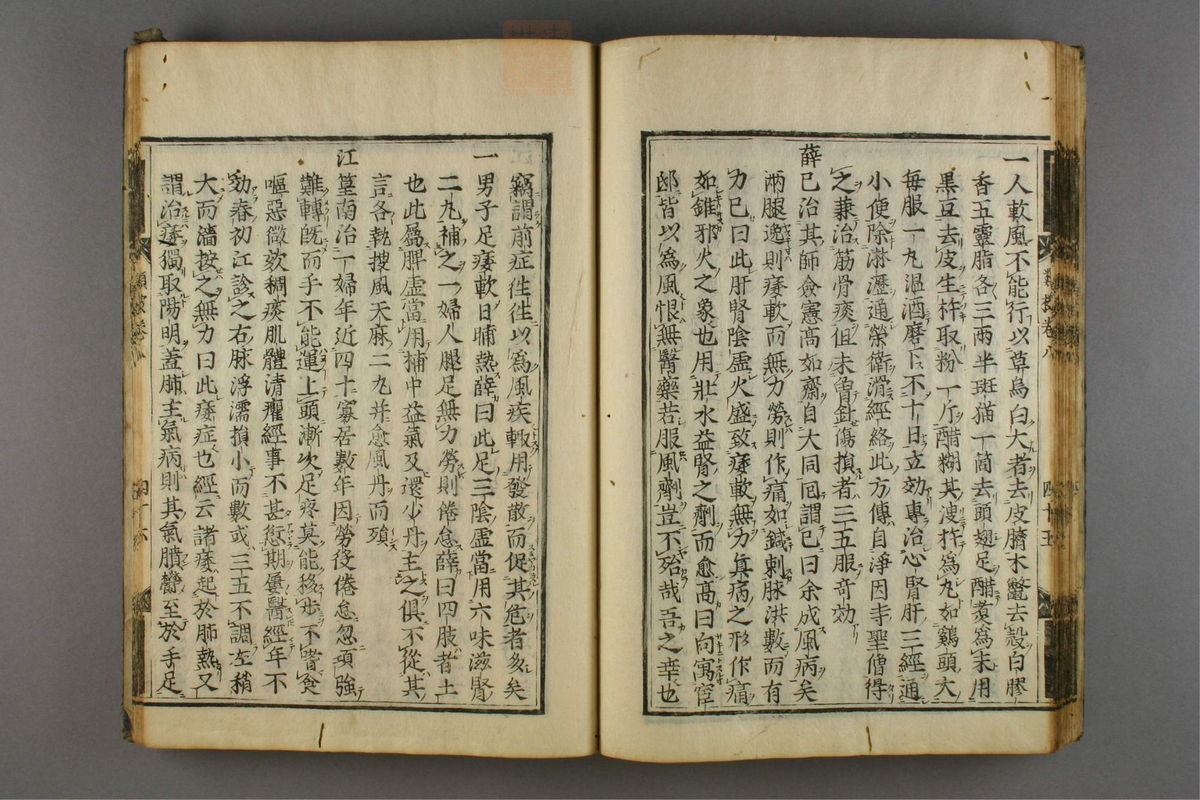 一人軟風不能行以草烏白大者去皮臍木鼈去殻白膠
香五靈脂各三兩半斑猫一箇去頭翅足醋煮為末用
黒豆去皮生杵取粉一斤醋糊共溲杵為丸如鷄頭大
毎服一丸温酒磨下不十日立効專治心腎肝三經通
小便除淋瀝通榮衛滑經絡此方傳自淨因寺聖僧得
之兼治筋骨痰但未曾針傷損者三五服竒効
薛己治其師僉憲高如齋自大同回謂己曰余成風病矣
兩腿逸則痿軟而無力勞則作痛如鍼刺脉洪數而有
力已曰此肝腎陰虚火盛致痿軟無力眞病之形作痛
如錐邪火之象也用壯水益腎之劑而愈高曰向寓宦
邸皆以為風恨無醫藥若服風劑豈不殆哉吾之幸也
類按卷八
四十五
竊謂前症徃徃以為風疾輙用發散而促其危者多矣
一男子足痿軟日晡熱薛曰此足三陰虚當用六味滋腎
二丸補之一婦人腿足無力勞則倦怠薛曰四肢者土
也此爲脾虚當用補中益氣及還少丹主之俱不從其
言各執搜風天麻二丸并愈風丹而殞
江篁南治一婦年近四十寡居數年因勞役倦怠忽項強
難轉既而手不能運上頭漸次足疼莫能移歩不嗜食
嘔惡微欬稠痰肌體清癯經事不甚愆期屡醫經年不
効春初江診之右脉浮濡損小而數或三五不調左稍
大而濇按之無力曰此痿症也經云諸痿起於肺熱又
謂治痿獨取陽明蓋肺主氣病則其氣膹鬱至於手足
四十六